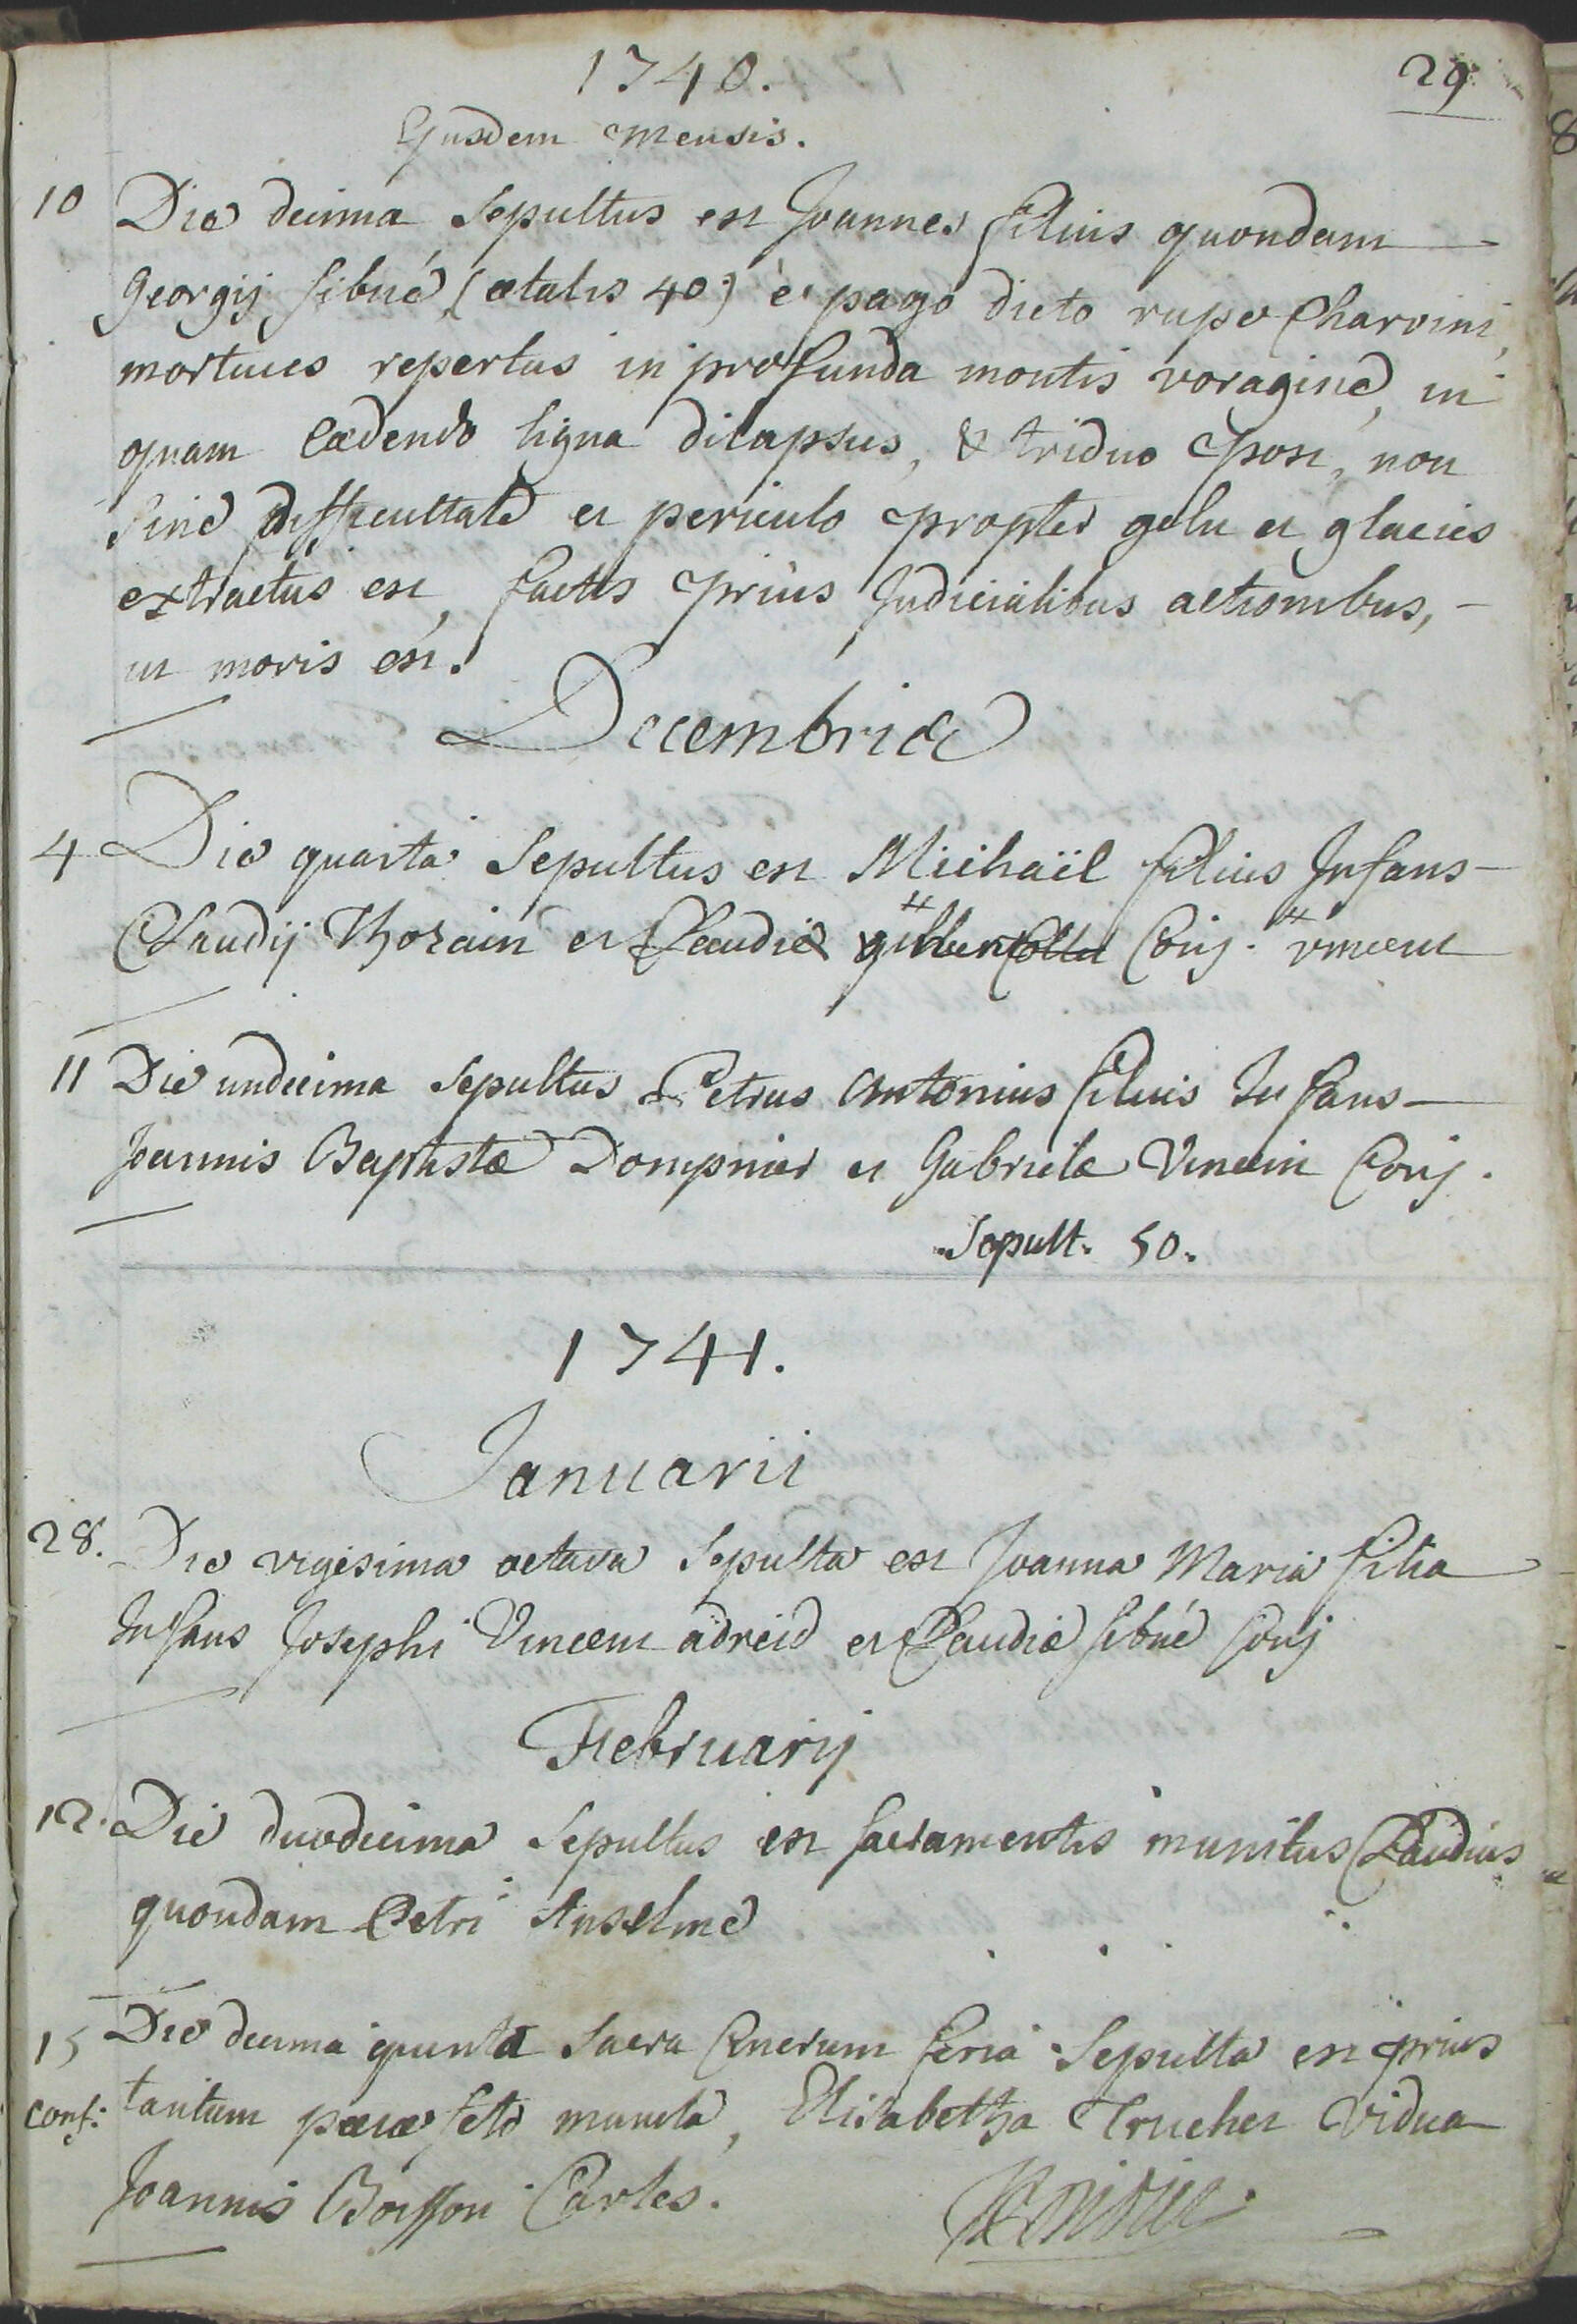 1740.
29
Ejusdem Mensis.
10 Die decima Sepultus est Joannes filius quondam
Georgij sibué (ætatis 40) è pago dicto rupe Charvini,
mortuus repertus in profunda montis voragine, in
quam Cædendo ligna dilapsus, & triduo post, non
Sine difficultate et periculo propter gelu et glacies
extractus est, factis priùs Judicialibus actionibus,
ut moris est.
Decembris
4 Die quarta Sepultus est Michaïl filius Infans
Claudij Thorain et Claudiæ Conj. # vincent
11 Die undecima Sepultus Petrus Antonius filius Infans
Joannis Baptistæ Dompnier et Gabrielæ Vincein Conj.
Sepult. 50.
1741.
Januarii
28. Die vigesima octava Sepulta est Joanna Maria filia
Infans Josephi Vincent adreid et Claudiæ sibué Conj
Februarij
12. Die duodecima Sepultus est Sacramentis munitus Claudius
quondam Petri Anselme
15 Die decima quinta Sacra Cinerum feria Sepulta est prius
conf: tantum munita, Elisabetha Truchet Vidua
Joannis Boisson Carles.